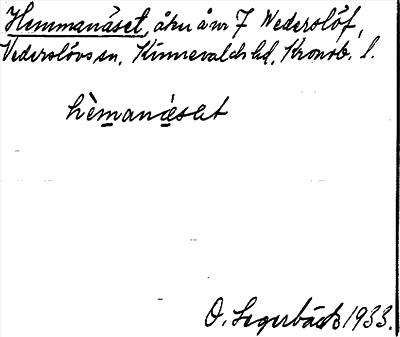 Hemmanäset, åker å nr 7 Wederslöf,
Vederslövs sn, Kinnevalds hd, Kronob. l.
hèmanäset
O. Segerbäck 1933.